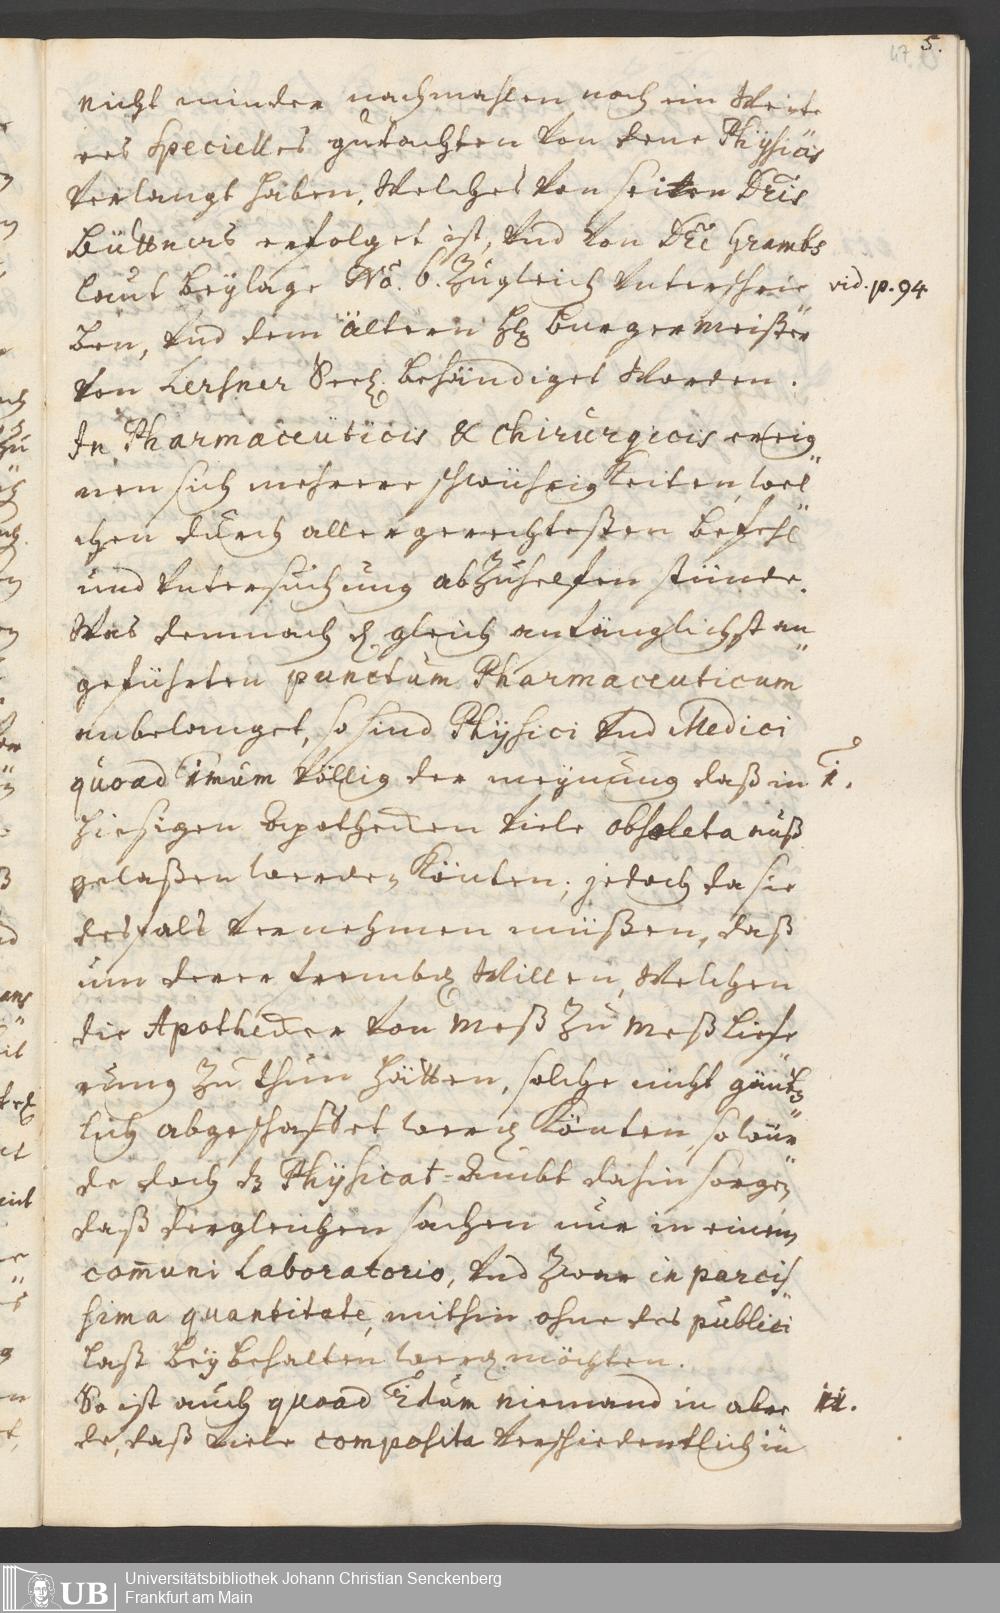 47. 5.
nicht minder nachmahlen noch ein Weite
res Specielles gutachten von dene Physicis
verlangt haben, Welches von seiten Dris
Büttners erfolget ist, und von Dre Grambs
laut beylage No. 6. Zugleich unterschrie
ben, und dem ältern H. burgermeister
von Lersner Seel. behändiget Worden.
vid. p. 94
In Pharmaceuticis & Chirurgicis ereig
nen sich mehrere schwührigkeiten, wel
chen durch allergerechtesten befehl
und untersuchung abZuhelfen stünde.
Was demnach d. gleich anfänglichst an
geführten punctum Pharmaceuticum
anbelanget, so sind Physici und Medici
quoad 1mum völlig der meynung daß in
1.
hiesigen Apothecken viele obsoleta auß
gelaßen werden könten; jedoch da sie
desfals vernehmen müßen, daß
um derer frembd. Willen, Welchen
die Apothecker von Meß Zu Meß liefe
rung Zu thun hätten, solche nicht gäntz
lich abgeschaffet werd. könten, so wür
de doch d. Physicat-Ambt dahin sorgen
daß dergleichen sachen nur in einem
comuni Laboratorio, und Zwar in parcis
sima quantitate, mithin ohne des publici
last beybehalten werd. möchten.
So ist auch quoad 2dum niemand in abre
11.
de, daß viele composita verschiedentlich in
UB
Universitätsbibliothek Johann Christian Senckenberg
Frankfurt am Main